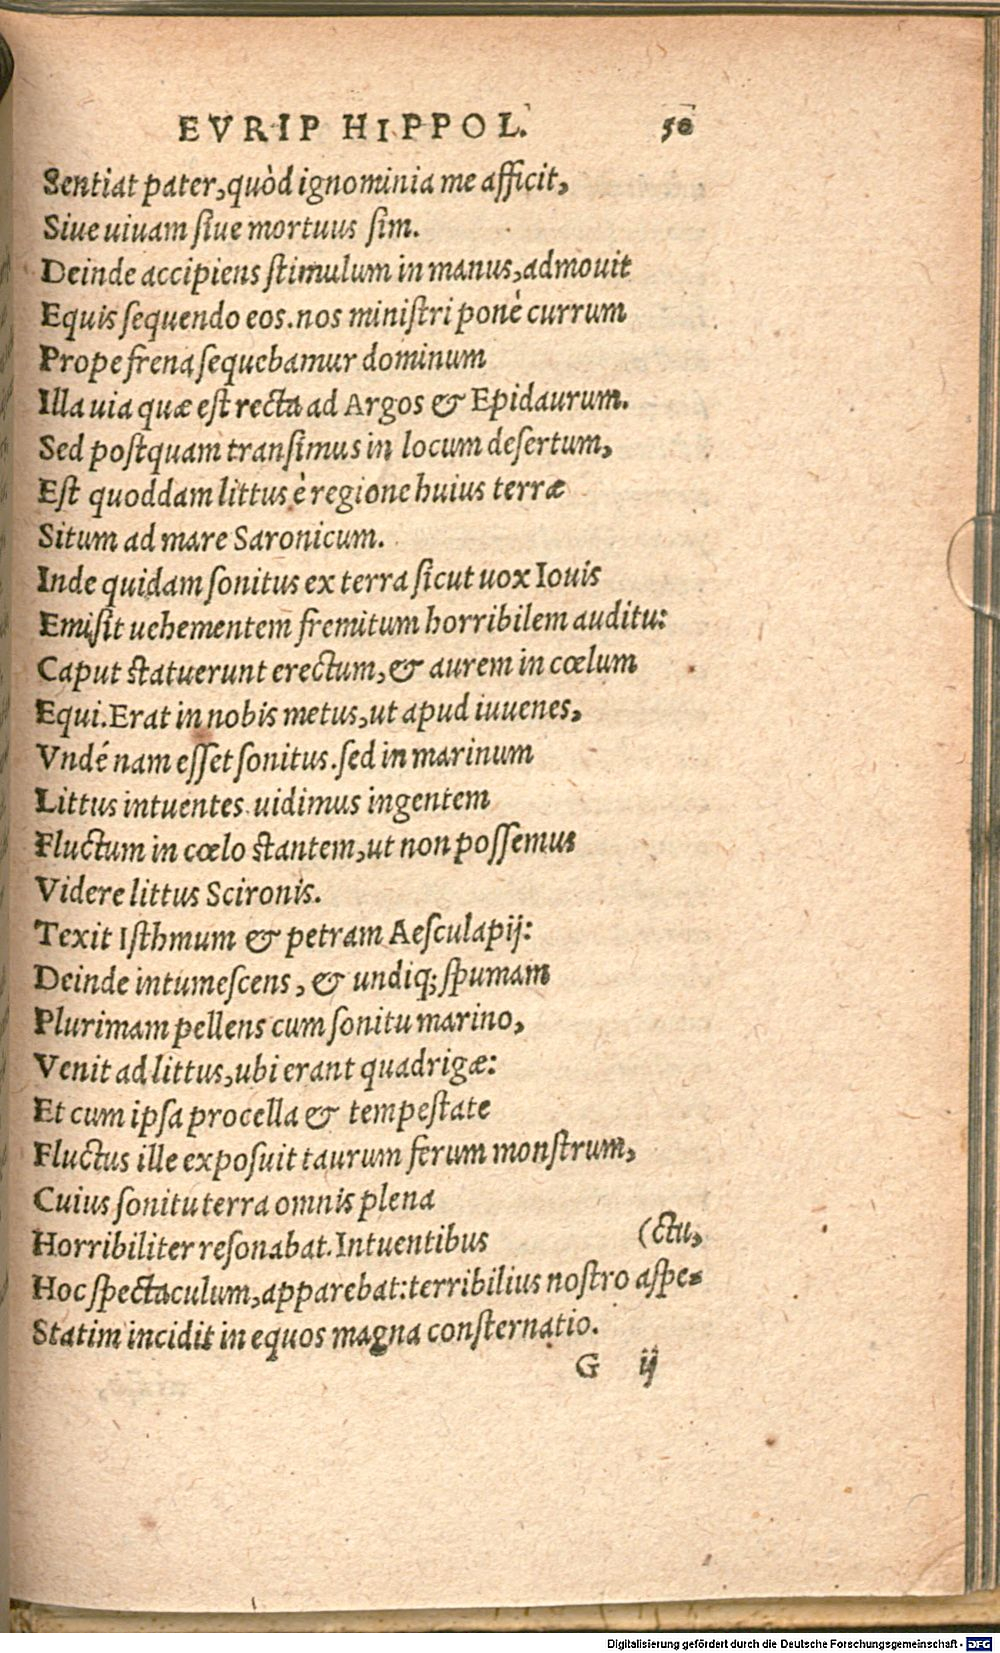 EVRIP HIPPOL. 50
Sentiat pater, quòd ignominia me afficit,
Siue uiuam siue mortuus sim.
Deinde accipiens stimulum in manus, admouit
Equis sequendo eos. nos ministri ponè currum
Prope frena sequebamur dominum
Illa uia quæ est recta ad Argos & Epidaurum.
Sed postquam transimus in locum desertum,
Est quoddam littus è regione huius terræ
Situm ad mare Saronicum.
Inde quidam sonitus ex terra sicut uox Iouis
Emisit uehementem fremitum horribilem auditu:
Caput statuerunt erectum, & aurem in cœlum
Equi. Erat in nobis metus, ut apud iuuenes,
Vndé nam esset sonitus. sed in marinum
Littus intuentes uidimus ingentem
Fluctum in cœlo stantem, ut non possemus
Videre littus Scironis.
Texit Isthmum & petram Aesculapij:
Deinde intumescens, & undiq; spumam
Plurimam pellens cum sonitu marino,
Venit ad littus, ubi erant quadrigæ:
Et cum ipsa procella & tempestate
Fluctus ille exposuit taurum ferum monstrum,
Cuius sonitu terra omnis plena
Horribiliter resonabat. Intuentibus (ctu,
Hoc spectaculum, apparebat: terribilius nostro aspe-
Statim incidit in equos magna consternatio.
G ij
Digitalisierung gefördert durch die Deutsche Forschungsgemeinschaft - DFG